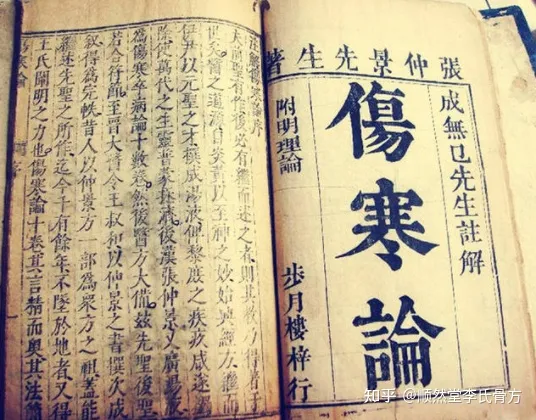 張仲景先生著
成無已先生註解
傷寒論
附明理論
步月樓梓行
注解傷寒論序
夫前聖有作後必有繼而述之者則其教乃得著于
世矣醫之道源自炎黃以至神之妙始興經方繼而
伊尹以元聖之才撰成湯液俾黎庶之疾疢咸遂蠲
除使萬代之生靈普蒙拯濟後漢張仲景又廣湯液
為傷寒卒病論十數卷然後醫方大備茲先聖後聖
若合符節至晉太醫令王叔和以仲景之書撰次成
敘得為完帙昔人以仲景方一部為眾方之祖蓋能
繼述先聖之所作迄今千有餘年不墜於地者又得
王氏闡明之力也傷寒論十卷其言精而奧其法簡
寒論
知乎 @顺然堂李氏骨方